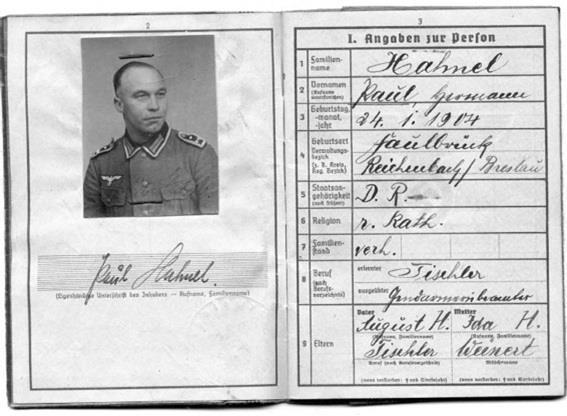 2
Paul Hahnel.
(Eigenhändige Unterschrift des Inhabers — Rufname, Familienname)
3
I. Angaben zur Person
1 Familien-
name
Hahnel
2 Vornamen
(Rufname
unterstreichen)
Paul, Hermann
3 Geburtstag,
-monat,
-jahr
24. 1. 1904
4 Geburtsort
Verwaltungs-
bezirk
(z. B. Kreis,
Reg. Bezirk)
Faulbrück
Reichenbach/Breslau
5 Staatsan-
gehörigkeit
(auch frühere)
D. R.
6 Religion
r. Kath.
7 Familien-
stand
verh.
8 Beruf
(nach
Berufs-
verzeichnis)
erlernter
Tischler
ausgeübter
Gendarmeriebeamter
9 Eltern
Vater
August H.
(Rufname, Familienname)
Tischler
Beruf (nach Berufsverzeichnis)
(wenn verstorben: † und Sterbejahr)
Mutter
Ida H.
(Rufname, Familienname)
Weinert
Mädchenname
(wenn verstorben: † und Sterbejahr)